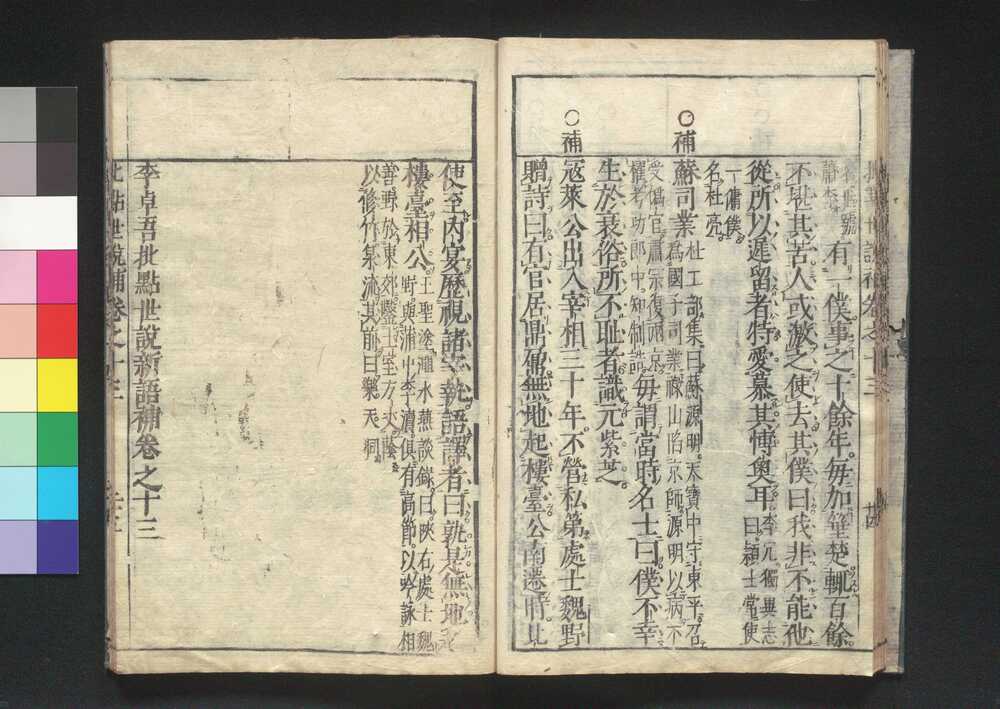 有一僕事之十餘年毎加箠楚輙百餘
不堪其苦人或激之使去其僕曰我非不能他
從所以遲留者特愛慕其博奧耳李元獨異志曰穎士常使
一傭僕名杜亮
○補
蘇司業杜工部集曰蘇源明天寶中守東平召
爲國子司業祿山陷京師源明以病不
受僞官肅宗復兩京
擢考功郎中知制誥毎謂當時名士曰僕不幸
生於衰俗所不耻者識元紫芝
○補
寇萊公出入宰相三十年不營私第處士魏野
贈詩曰有官居鼎鼐無地起樓臺公南遷時北
使至内宴歷視諸宰執語譯者曰孰是無地起
樓臺相公王聖塗澠水燕談錄曰陝右處士魏
野與蒲中李瀆俱有高節以吟詠相
善野於東郊鑿土室方丈蔭
以修竹泉流其前曰樂天洞
李卓吾批點世說新語補卷之十三